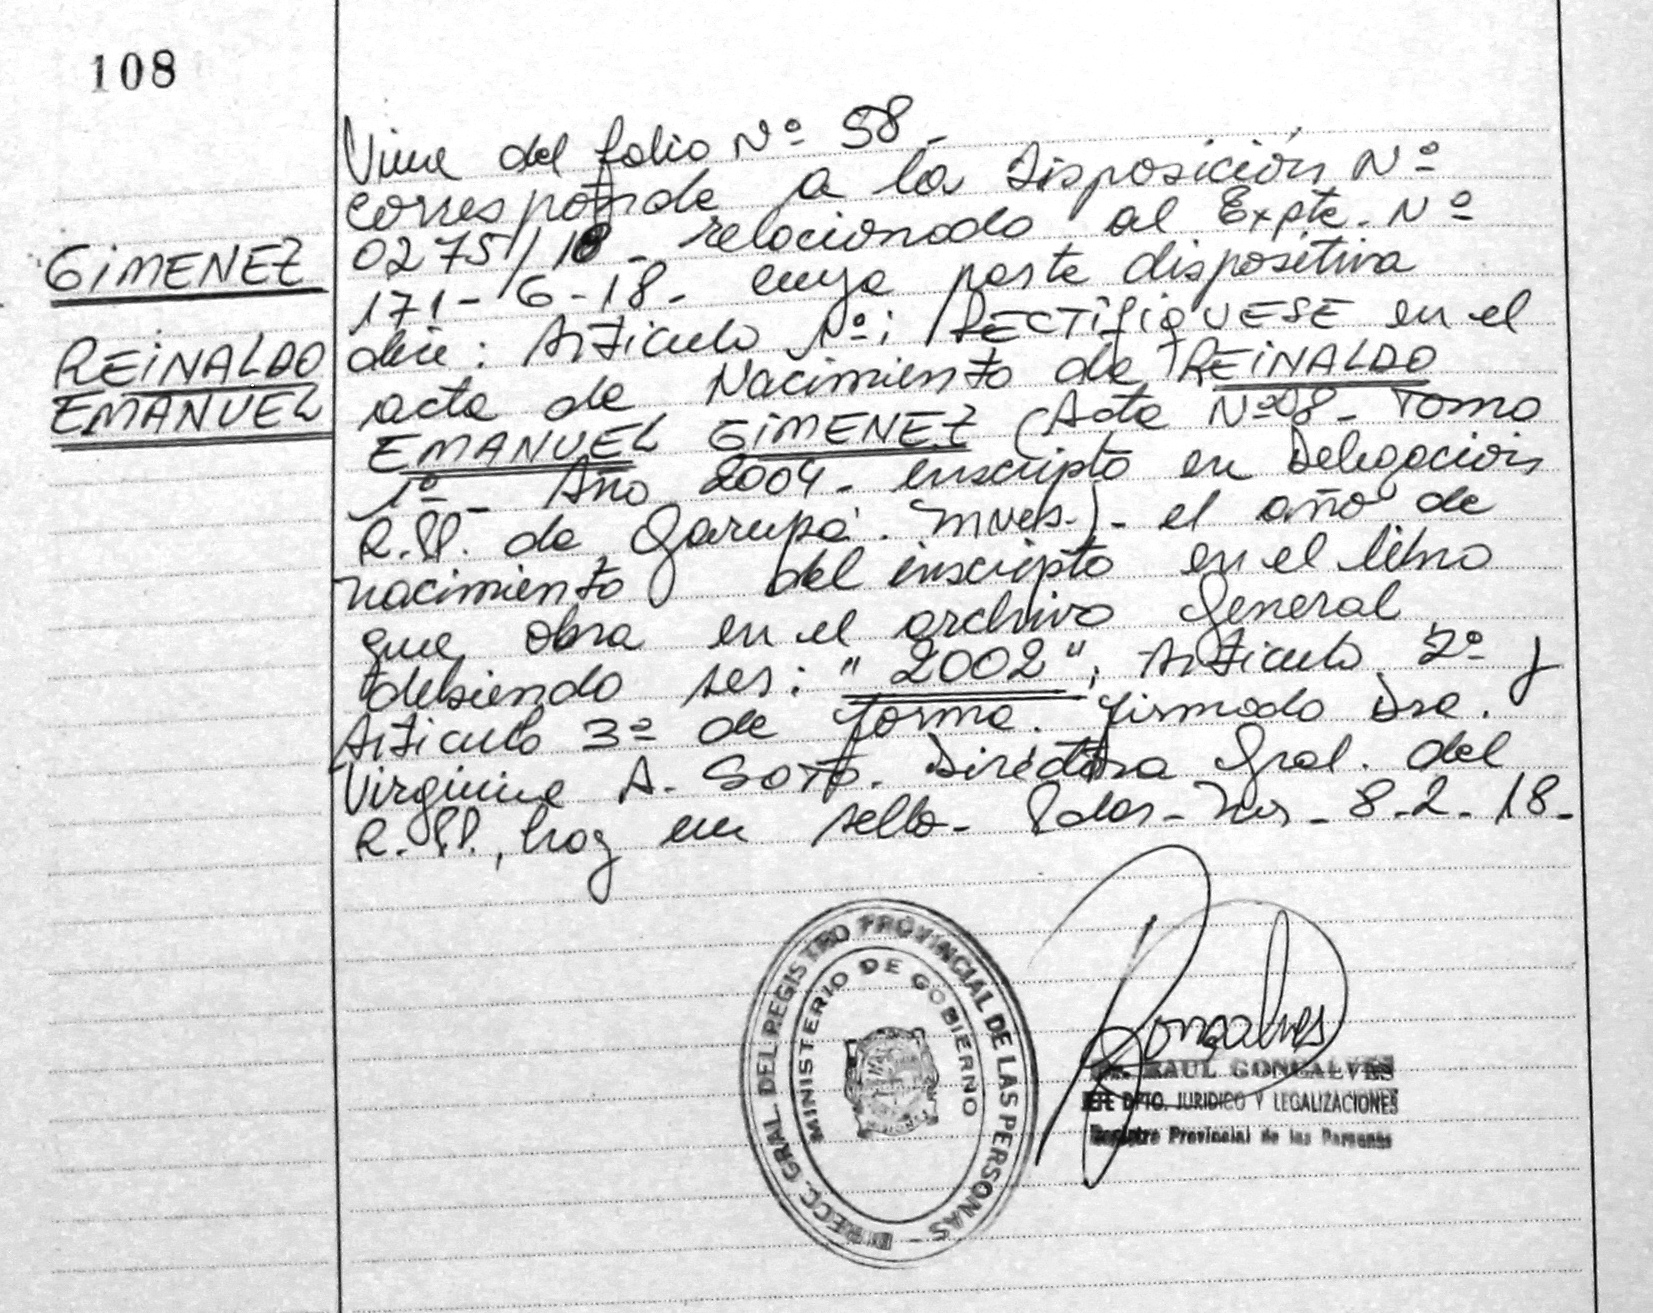 108
GIMENEZ
REINALDO
EMANUEL
Viene del folio Nº 58-
corresponde a la Disposición Nº
0275/18- relacionado al Expte. Nº
171-6-18- cuya parte dispositiva
dice: Articulo 1º: RECTIFIQUESE en el
acta de Nacimiento de REINALDO
EMANUEL GIMENEZ (Acta Nº 208- Tomo
1º- Año 2004- inscripto en Delegación
R.PP. de Garupá. Mnes-)- el año de
nacimiento del inscripto en el libro
que obra en el archivo General
debiendo ser: "2002"; Articulo 2º y
Articulo 3º de forma. firmado Dra.
Virginia A. Soto. Directora Gral. del
R.PP., hay un sello- Pdas- Mes- 8-2-18-
DIRECC. GRAL. DEL REGISTRO PROVINCIAL DE LAS PERSONAS
MINISTERIO DE GOBIERNO
Goncalves
RAUL GONCALVES
JEFE DPTO. JURIDICO Y LEGALIZACIONES
Registro Provincial de las Personas